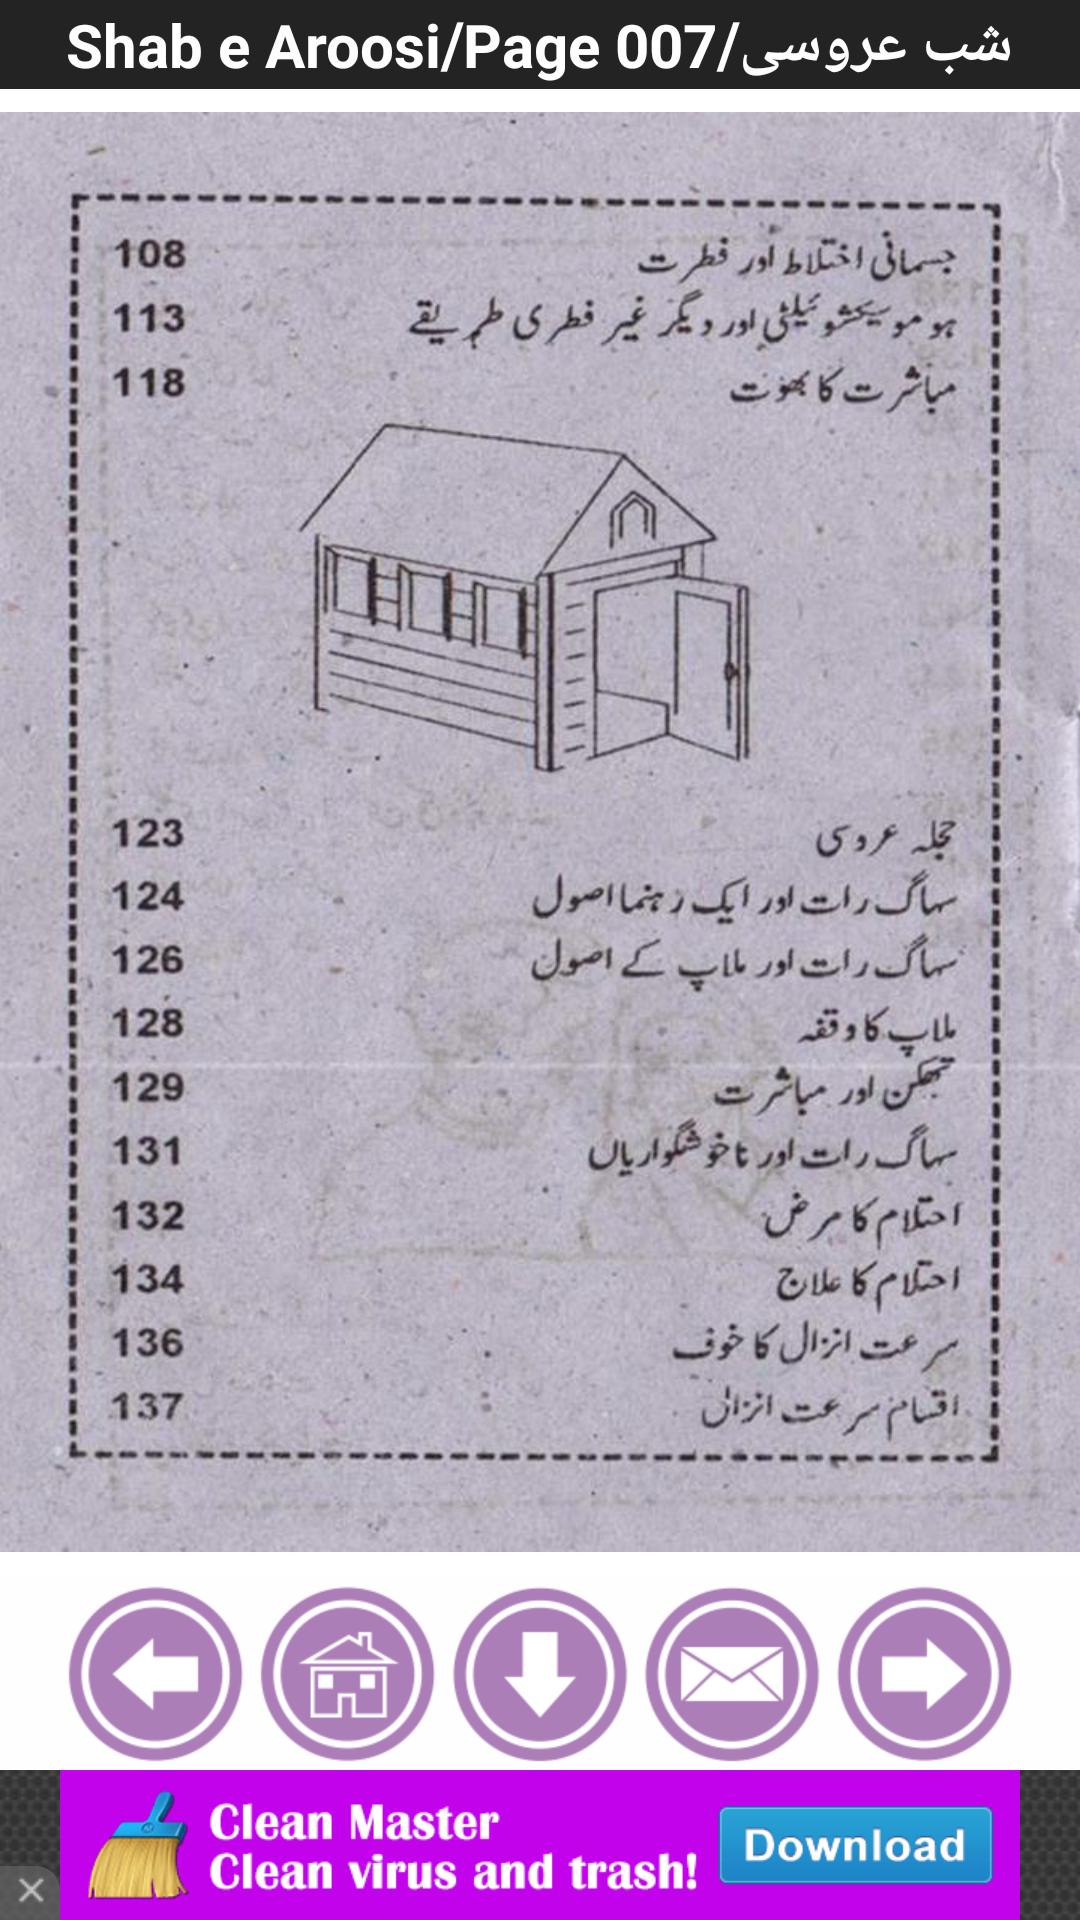 Shab e Aroosi/Page 007/شب عروسی
جسمانی اختلاط اور فطرت 108
ہوموسیکشوئیلٹی اور دیگر غیر فطری طریقے 113
مباشرت کا بھوت 118
حجلہ عروسی 123
سہاگ رات اور ایک رہنما اصول 124
سہاگ رات اور ملاپ کے اصول 126
ملاپ کا وقفہ 128
تھکن اور مباشرت 129
سہاگ رات اور ناخوشگواریاں 131
احتلام کا مرض 132
احتلام کا علاج 134
سرعت انزال کا خوف 136
اقسام سرعت انزال 137
Clean Master
Clean virus and trash!
Download